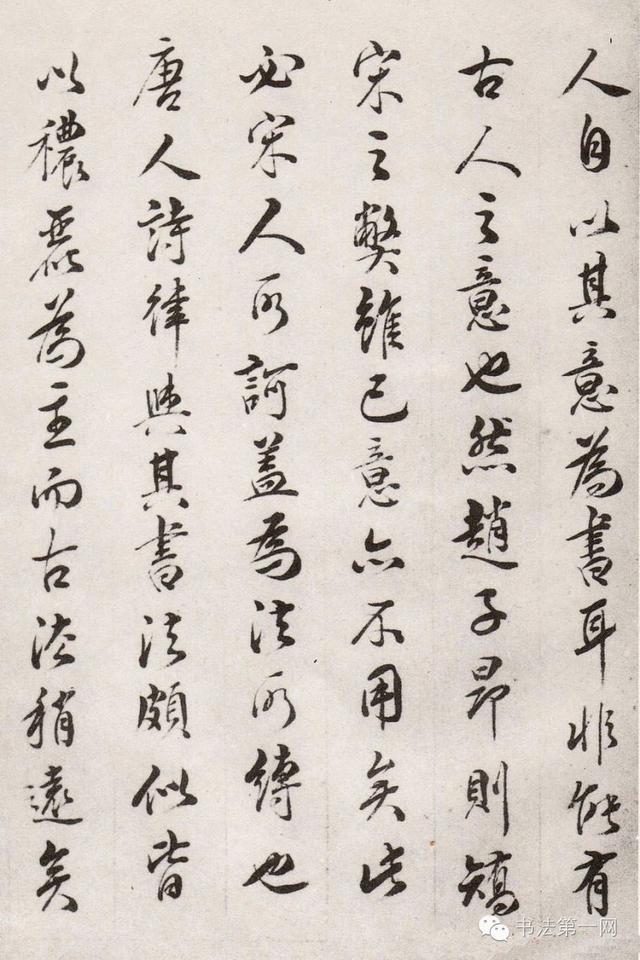 人自以其意為書耳非能有
古人之意也然趙子昂則矯
宋之弊雖己意亦不用矣此
必宋人所訶蓋為法所縛也
唐人詩律與其書法頗似皆
以穠麗為主而古法稍遠矣
书法第一网